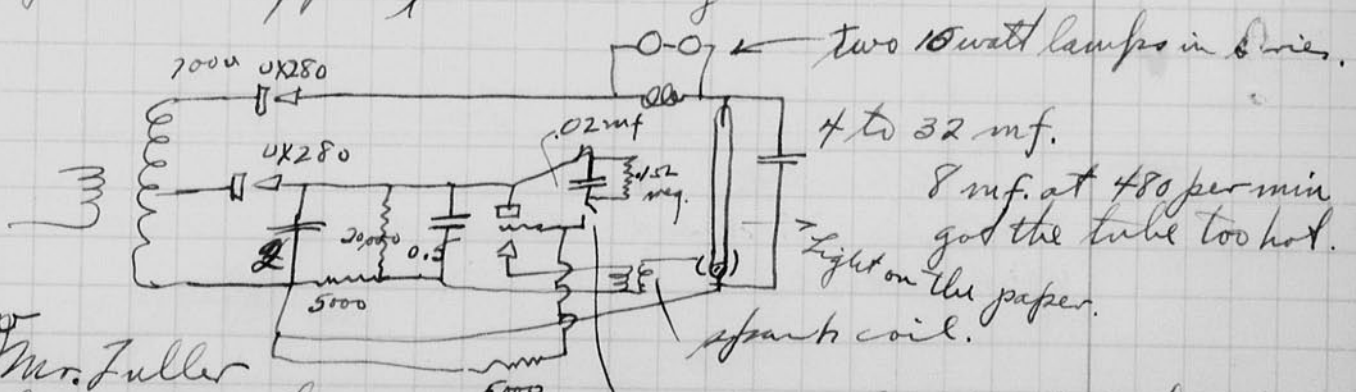 two 10 watt lamps in series.
700v UX280
.02 mf
4 to 32 mf.
UX280
meg.
8 mf. at 480 per min
got the tube too hot.
2
20,000
0.5
Light on the paper.
5000
spark coil.
Mr. Fuller